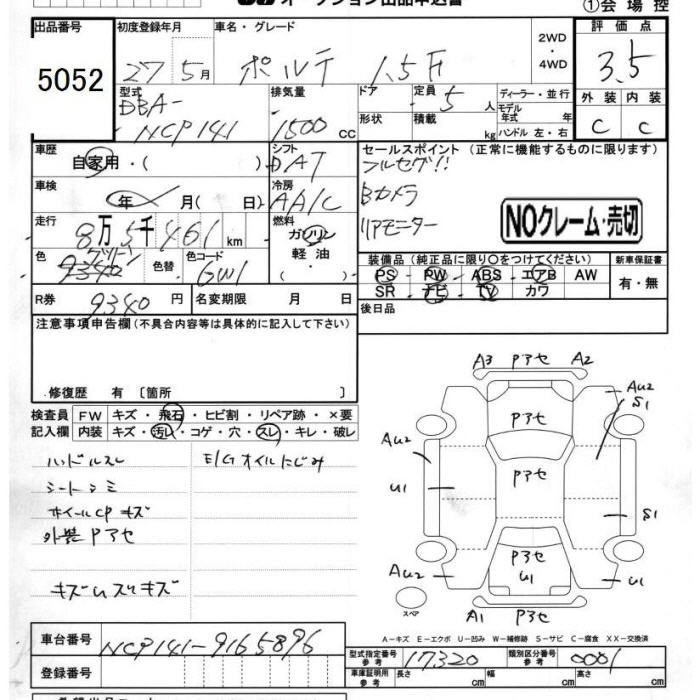 オークション出品申込書
①会場控
出品番号
5052
初度登録年月
27 5月
車名・グレード
ポルテ 1.5F
2WD
・
4WD
評価点
3.5
外装 内装
C C
型式
DBA-
NCP141
排気量
1500 CC
ドア
形状
定員
5人
積載 kg
ディーラー・並行
モデル
年式 年
ハンドル 左・右
車歴
自家用・( )
シフト
DAT
セールスポイント (正常に機能するものに限ります)
フルセグ!!
Bカメラ
リアモニター
NOクレーム・売切
車検
年 月( 日)
冷房
AA/C
走行
8万5千461km
燃料
ガソリン
軽油
・( )
色
グリーン
9340
色替
色コード
6W1
装備品 (純正品に限り○をつけてください)
PS・PW・ABS・エアB AW
SR・ナビ・TV・カワ
新車保証書
有・無
R券
9340円
名変期限 月 日
後日品
注意事項申告欄(不具合内容等は具体的に記入して下さい)
修復歴 有〔箇所 〕
検査員
記入欄
FW キズ・飛石・ヒビ割・リペア跡・×要
内装 キズ・汚レ・コゲ・穴・スレ・キレ・破レ
ハンドルスレ
E/Gオイルにじみ
シートシミ
ホイールCPキズ
外装Pアセ
キズUスリキズ
A3 Pアセ A2
AU2
S1
Pアセ
AU2
Pアセ
U1
S1
Pアセ
AU2 U1 U1
スペア
A1 Pアセ
A-キズ E-エクボ U-凹み W-補修跡 S-サビ C-腐食 XX-交換済
車台番号
NCP141-9165896
登録番号
型式指定番号
参考
17320
類別区分番号
参考
0001
車庫証明用
参考
長さ cm 幅 cm 高さ cm